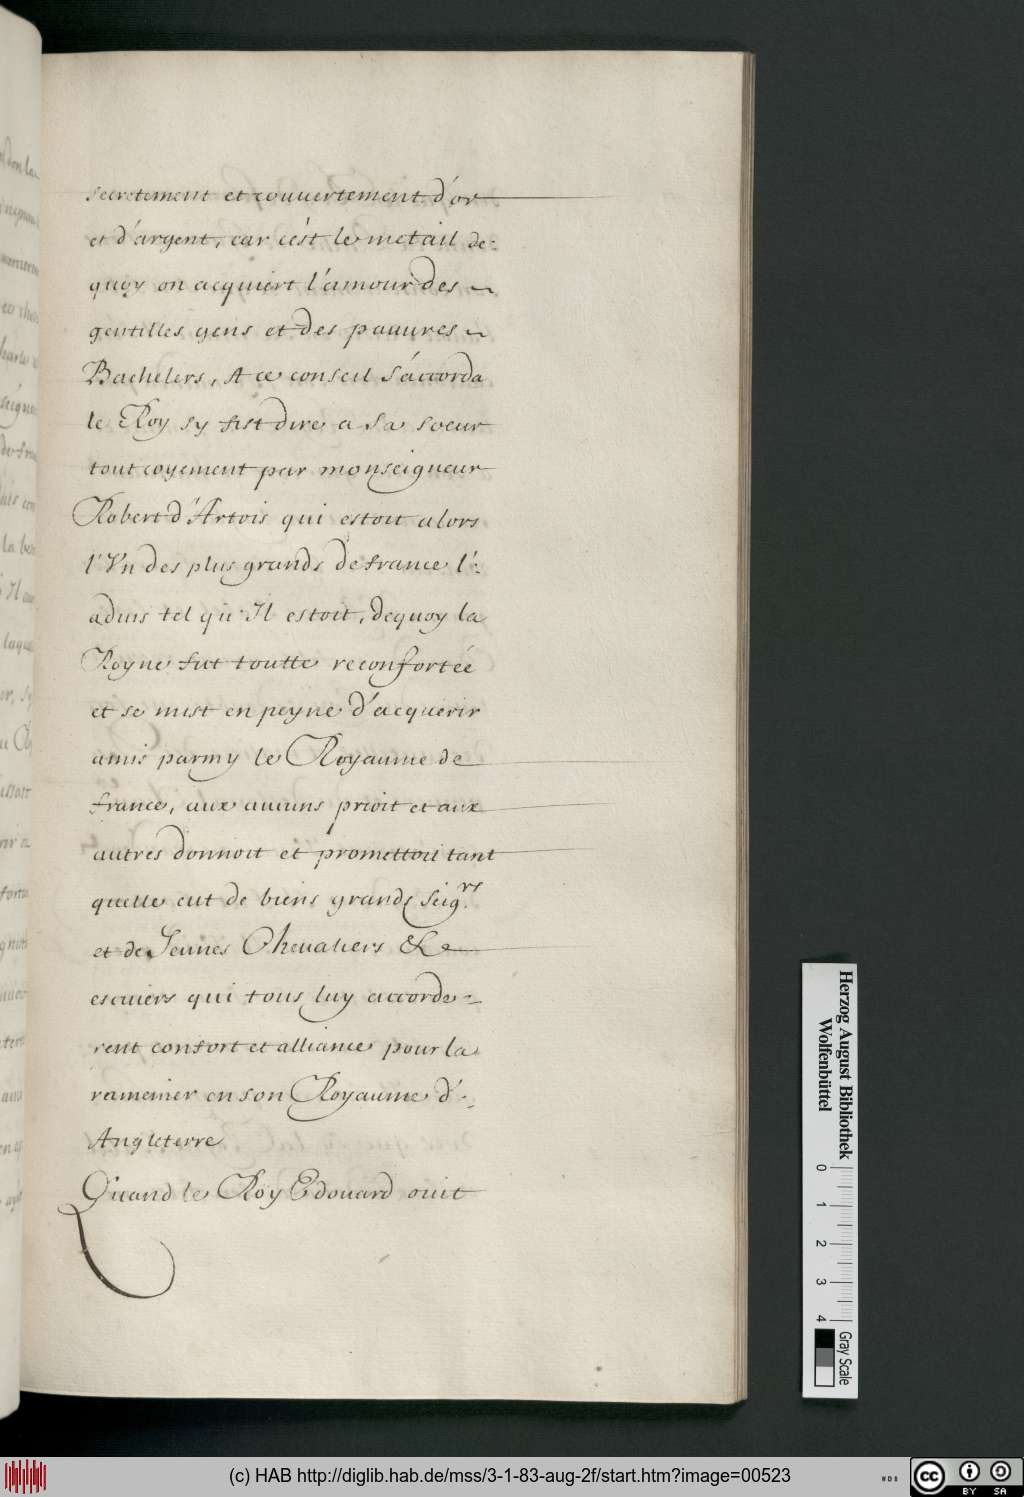 secretement et couuertement d'or
et d'argent, car c'est le metail de-
quoy on acquiert l'amour des
gentilles gens et des pauures
Bachelers, A ce conseil s'accorda
le Roy sy fist dire a sa soeur
tout coyement par monseigneur
Robert d'Artois qui estoit alors
l'Vn des plus grands de france l'-
aduis tel qu'Il estoit, dequoy la
Royne fut toutte reconfortée
et se mist en peyne d'acquerir
amis parmy le Royaume de
france, aux aucuns prioit et aux
autres donnoit et promettoit tant
quelle eut de biens grands seigrs.
et de Jeunes Chevaliers &
escuiers qui tous luy accorde-
rent confort et alliance pour la
ramener en son Royaume d'-
Angleterre
Quand le Roy Edouard ouit
Herzog August Bibliothek
Wolfenbüttel
0 1 2 3 4
Gray Scale
(c) HAB http://diglib.hab.de/mss/3-1-83-aug-2f/start.htm?image=00523
cc BY SA